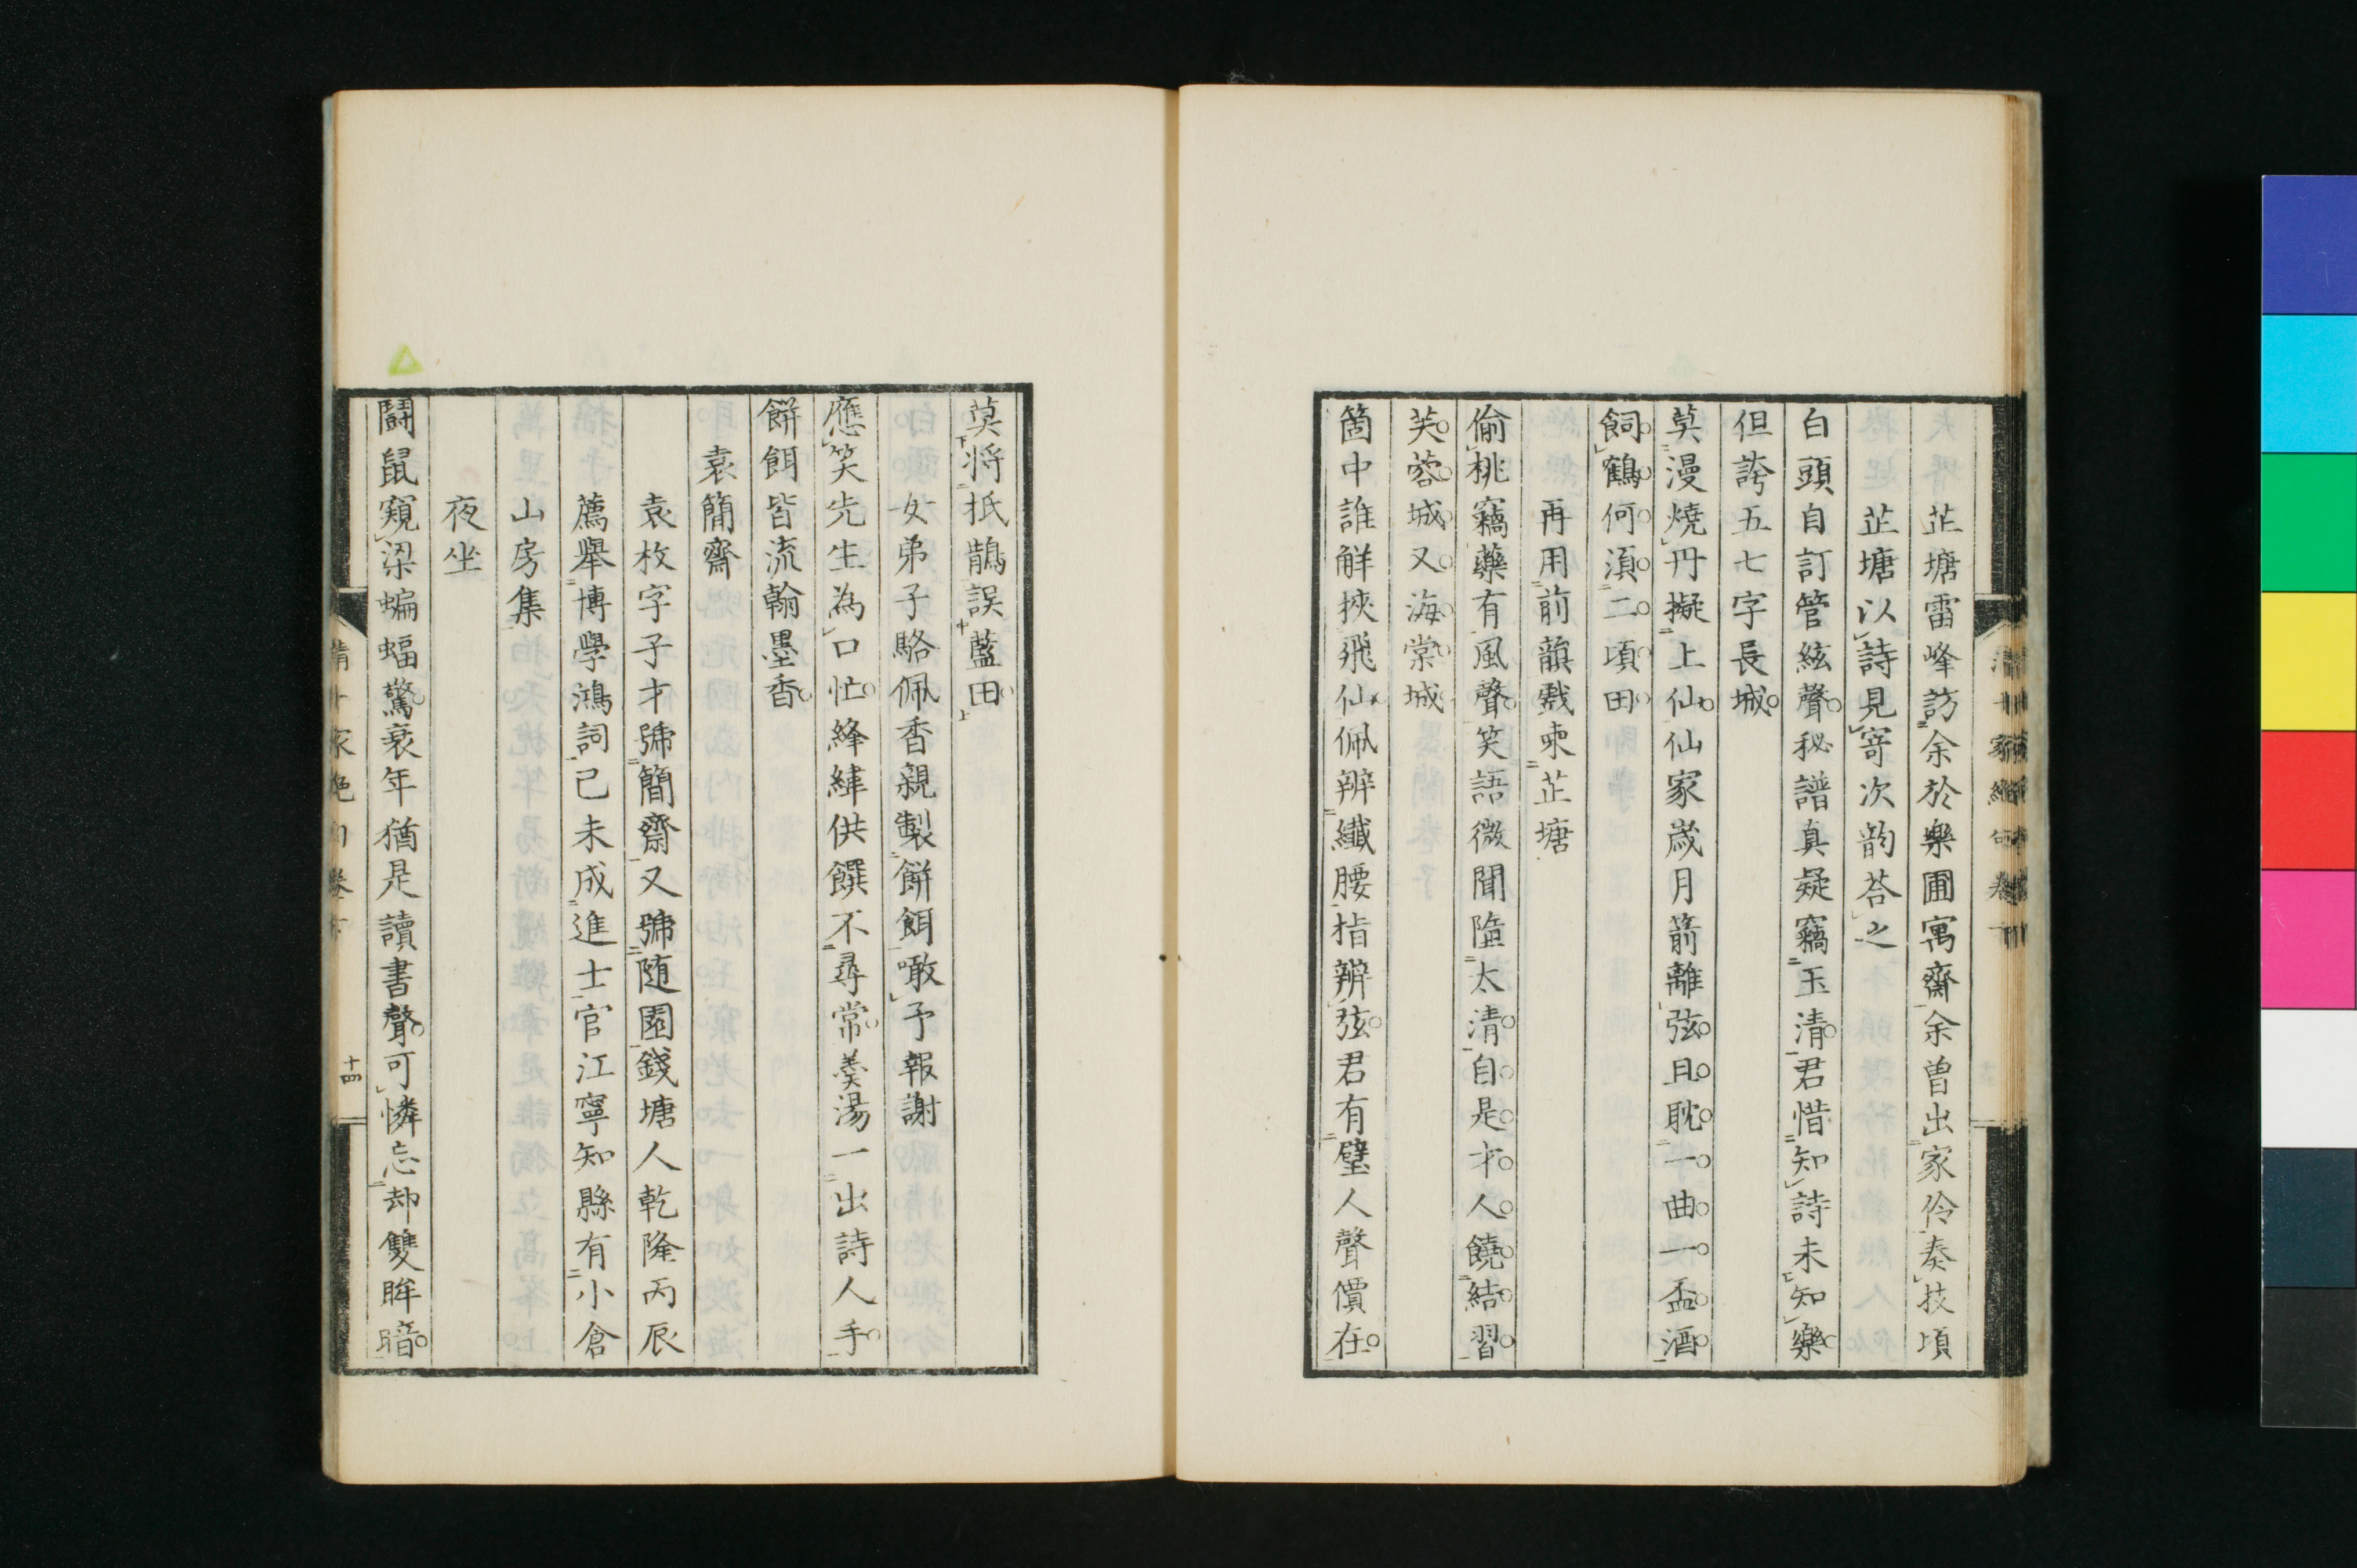 芷塘雷峰訪余於樂圃寓齋余曽出家伶奏技頃
芷塘以詩見寄次韵荅之
白頭自訂管絃聲秘譜真疑竊玉清君惜知詩未知樂
但誇五七字長城
莫漫燒丹擬上仙仙家歲月箭離弦且耽一曲一盃酒
飼鶴何湏二頃田
再用前韻戲柬芷塘
偷桃竊藥有風聲笑語微聞墮太清自是才人饒結習
芙蓉城又海棠城
箇中誰解挾飛仙佩辨纖腰指辨弦君有璧人聲價在
莫將抵鵲誤藍田
女弟子駱佩香親製餅餌噉予報謝
應笑先生為口忙絳緯供饌不尋常羮湯一出詩人手
餅餌皆流翰墨香
袁簡齋
袁枚字子才號簡齋又號随園錢塘人乾隆丙辰
薦舉博學鴻詞己未成進士官江寧知縣有小倉
山房集
夜坐
鬪鼠窺梁蝙蝠驚衰年猶是讀書聲可憐忘却雙眸暗
十四